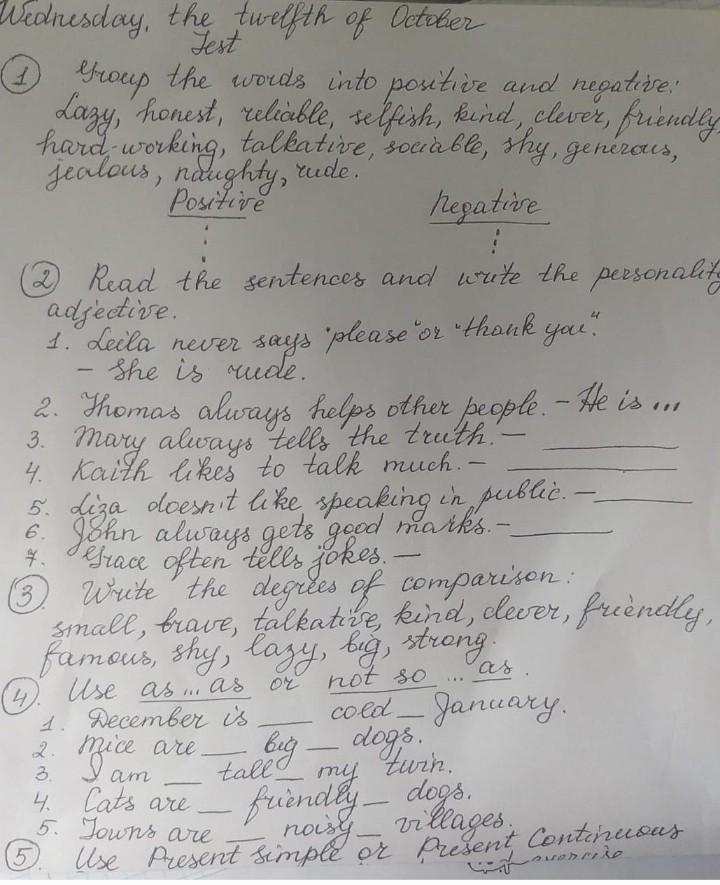 Wednesday, the twelfth of October
Test
1 Group the words into positive and negative:
Lazy, honest, reliable, selfish, kind, clever, friendly,
hard-working, talkative, sociable, shy, generous,
jealous, naughty, rude.
Positive Negative
2 Read the sentences and write the personality
adjective.
1. Leila never says "please" or "thank you".
- She is rude.
2. Thomas always helps other people. - He is ...
3. Mary always tells the truth. - ______
4. Kaith likes to talk much. - ______
5. Liza doesn't like speaking in public. - ______
6. John always gets good marks. - ______
7. Grace often tells jokes. —
3 Write the degrees of comparison:
small, brave, talkative, kind, clever, friendly,
famous, shy, lazy, big, strong.
4. Use as ... as or not so ... as.
1. December is ___ cold _ January.
2. Mice are ___ big _ dogs.
3. I am ___ tall _ my twin.
4. Cats are ___ friendly _ dogs.
5. Towns are ___ noisy _ villages.
5 Use Present Simple or Present Continuous